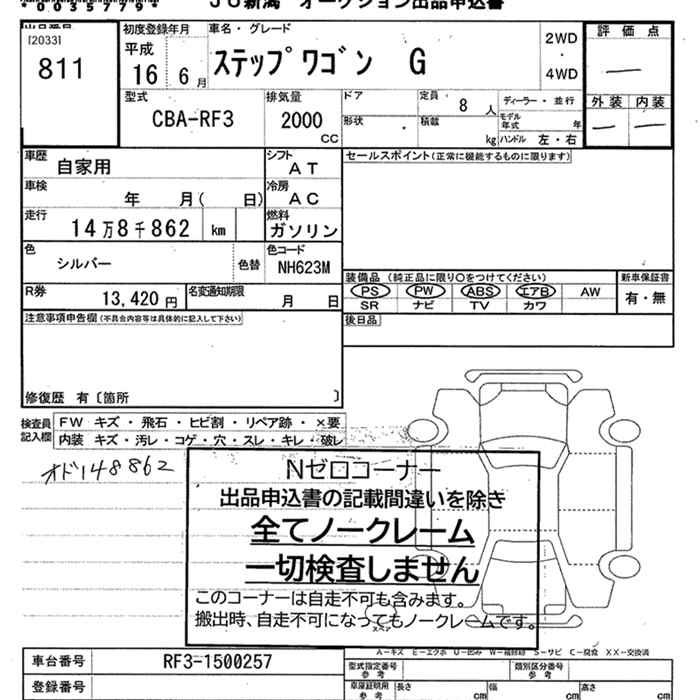 *00357779*
JU新潟 オークション出品申込書
出品番号
[2033]
811
初度登録年月
平成
16 6月
車名・グレード
ステップワゴン G
2WD
・
4WD
評価点
外装 内装
型式
CBA-RF3
排気量
2000
CC
ドア
形状
定員 8 人
積載 kg
ディーラー・並行
モデル年式 年
ハンドル 左・右
車歴
自家用
シフト
AT
セールスポイント(正常に機能するものに限ります)
車検
年 月( 日)
冷房
AC
走行
14万8千862 km
燃料
ガソリン
色
シルバー
色替
色コード
NH623M
装備品(純正品に限り○をつけてください)
新車保証書
PS PW ABS エアB AW
SR ナビ TV カワ
有・無
R券
13,420円
名変通知期限
月 日
後日品
注意事項申告欄(不具合内容等は具体的に記入して下さい)
修復歴 有〔箇所 〕
検査員
記入欄
FW キズ・飛石・ヒビ割・リペア跡・×要
内装 キズ・汚レ・コゲ・穴・スレ・キレ・破レ
オド148862
Nゼロコーナー
出品申込書の記載間違いを除き
全てノークレーム
一切検査しません
このコーナーは自走不可も含みます。
搬出時、自走不可になってもノークレームです。
スペア
A-キズ E-エクボ U-凹み W-補修跡 S-サビ C-腐食 XX-交換済
車台番号
RF3-1500257
型式指定番号
参考
類別区分番号
参考
登録番号
車庫証明用
参考
長さ cm
幅 cm
高さ cm